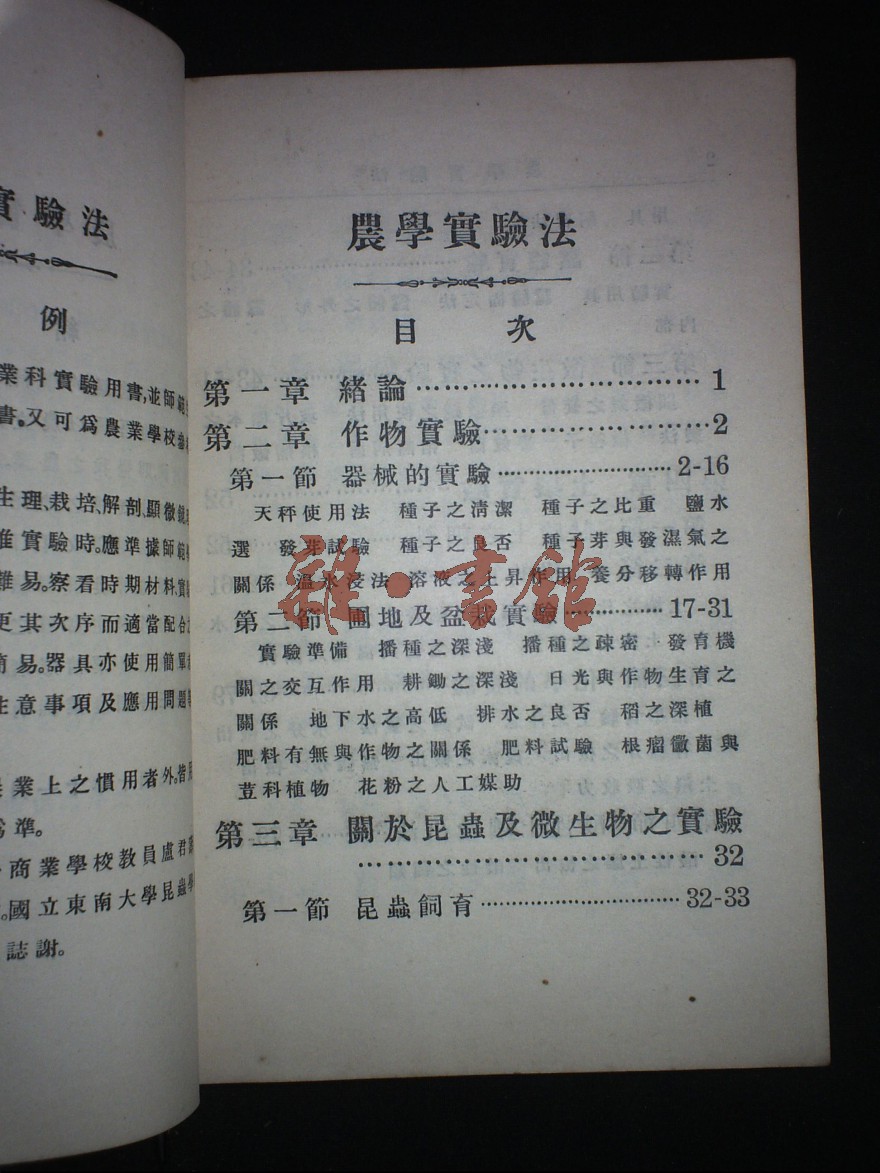 實驗法
例
業科實驗用書,並師範
書。又可爲農業學校參
生理、栽培、解剖、顯微鏡
實驗時。應準據師範
難易。察看時期材料,
更其次序而適當配合
簡易。器具亦使用簡單
注意事項及應用問題
業上之慣用者外。皆
爲準。
商業學校教員盧君
國立東南大學昆蟲學
誌謝。
農學實驗法
目次
第一章 緒論⋯⋯⋯⋯⋯⋯⋯⋯1
第二章 作物實驗⋯⋯⋯⋯⋯⋯2
第一節 器械的實驗⋯⋯⋯⋯⋯2-16
天秤使用法 種子之清潔 種子之比重 鹽水
選 發芽試驗 種子之良否 種子芽與發濕氣之
關係 溫水浸法 溶液之上昇作用 養分移轉作用
第二節 圃地及盆栽實驗⋯⋯⋯17-31
實驗準備 播種之深淺 播種之疎密 發育機
關之交互作用 耕鋤之深淺 日光與作物生育之
關係 地下水之高低 排水之良否 稻之深植
肥料有無與作物之關係 肥料試驗 根瘤黴菌與
荳科植物 花粉之人工媒助
第三章 關於昆蟲及微生物之實驗
⋯⋯⋯⋯⋯⋯⋯⋯⋯⋯32
第一節 昆蟲飼育⋯⋯⋯⋯⋯⋯32-33
雜·書館